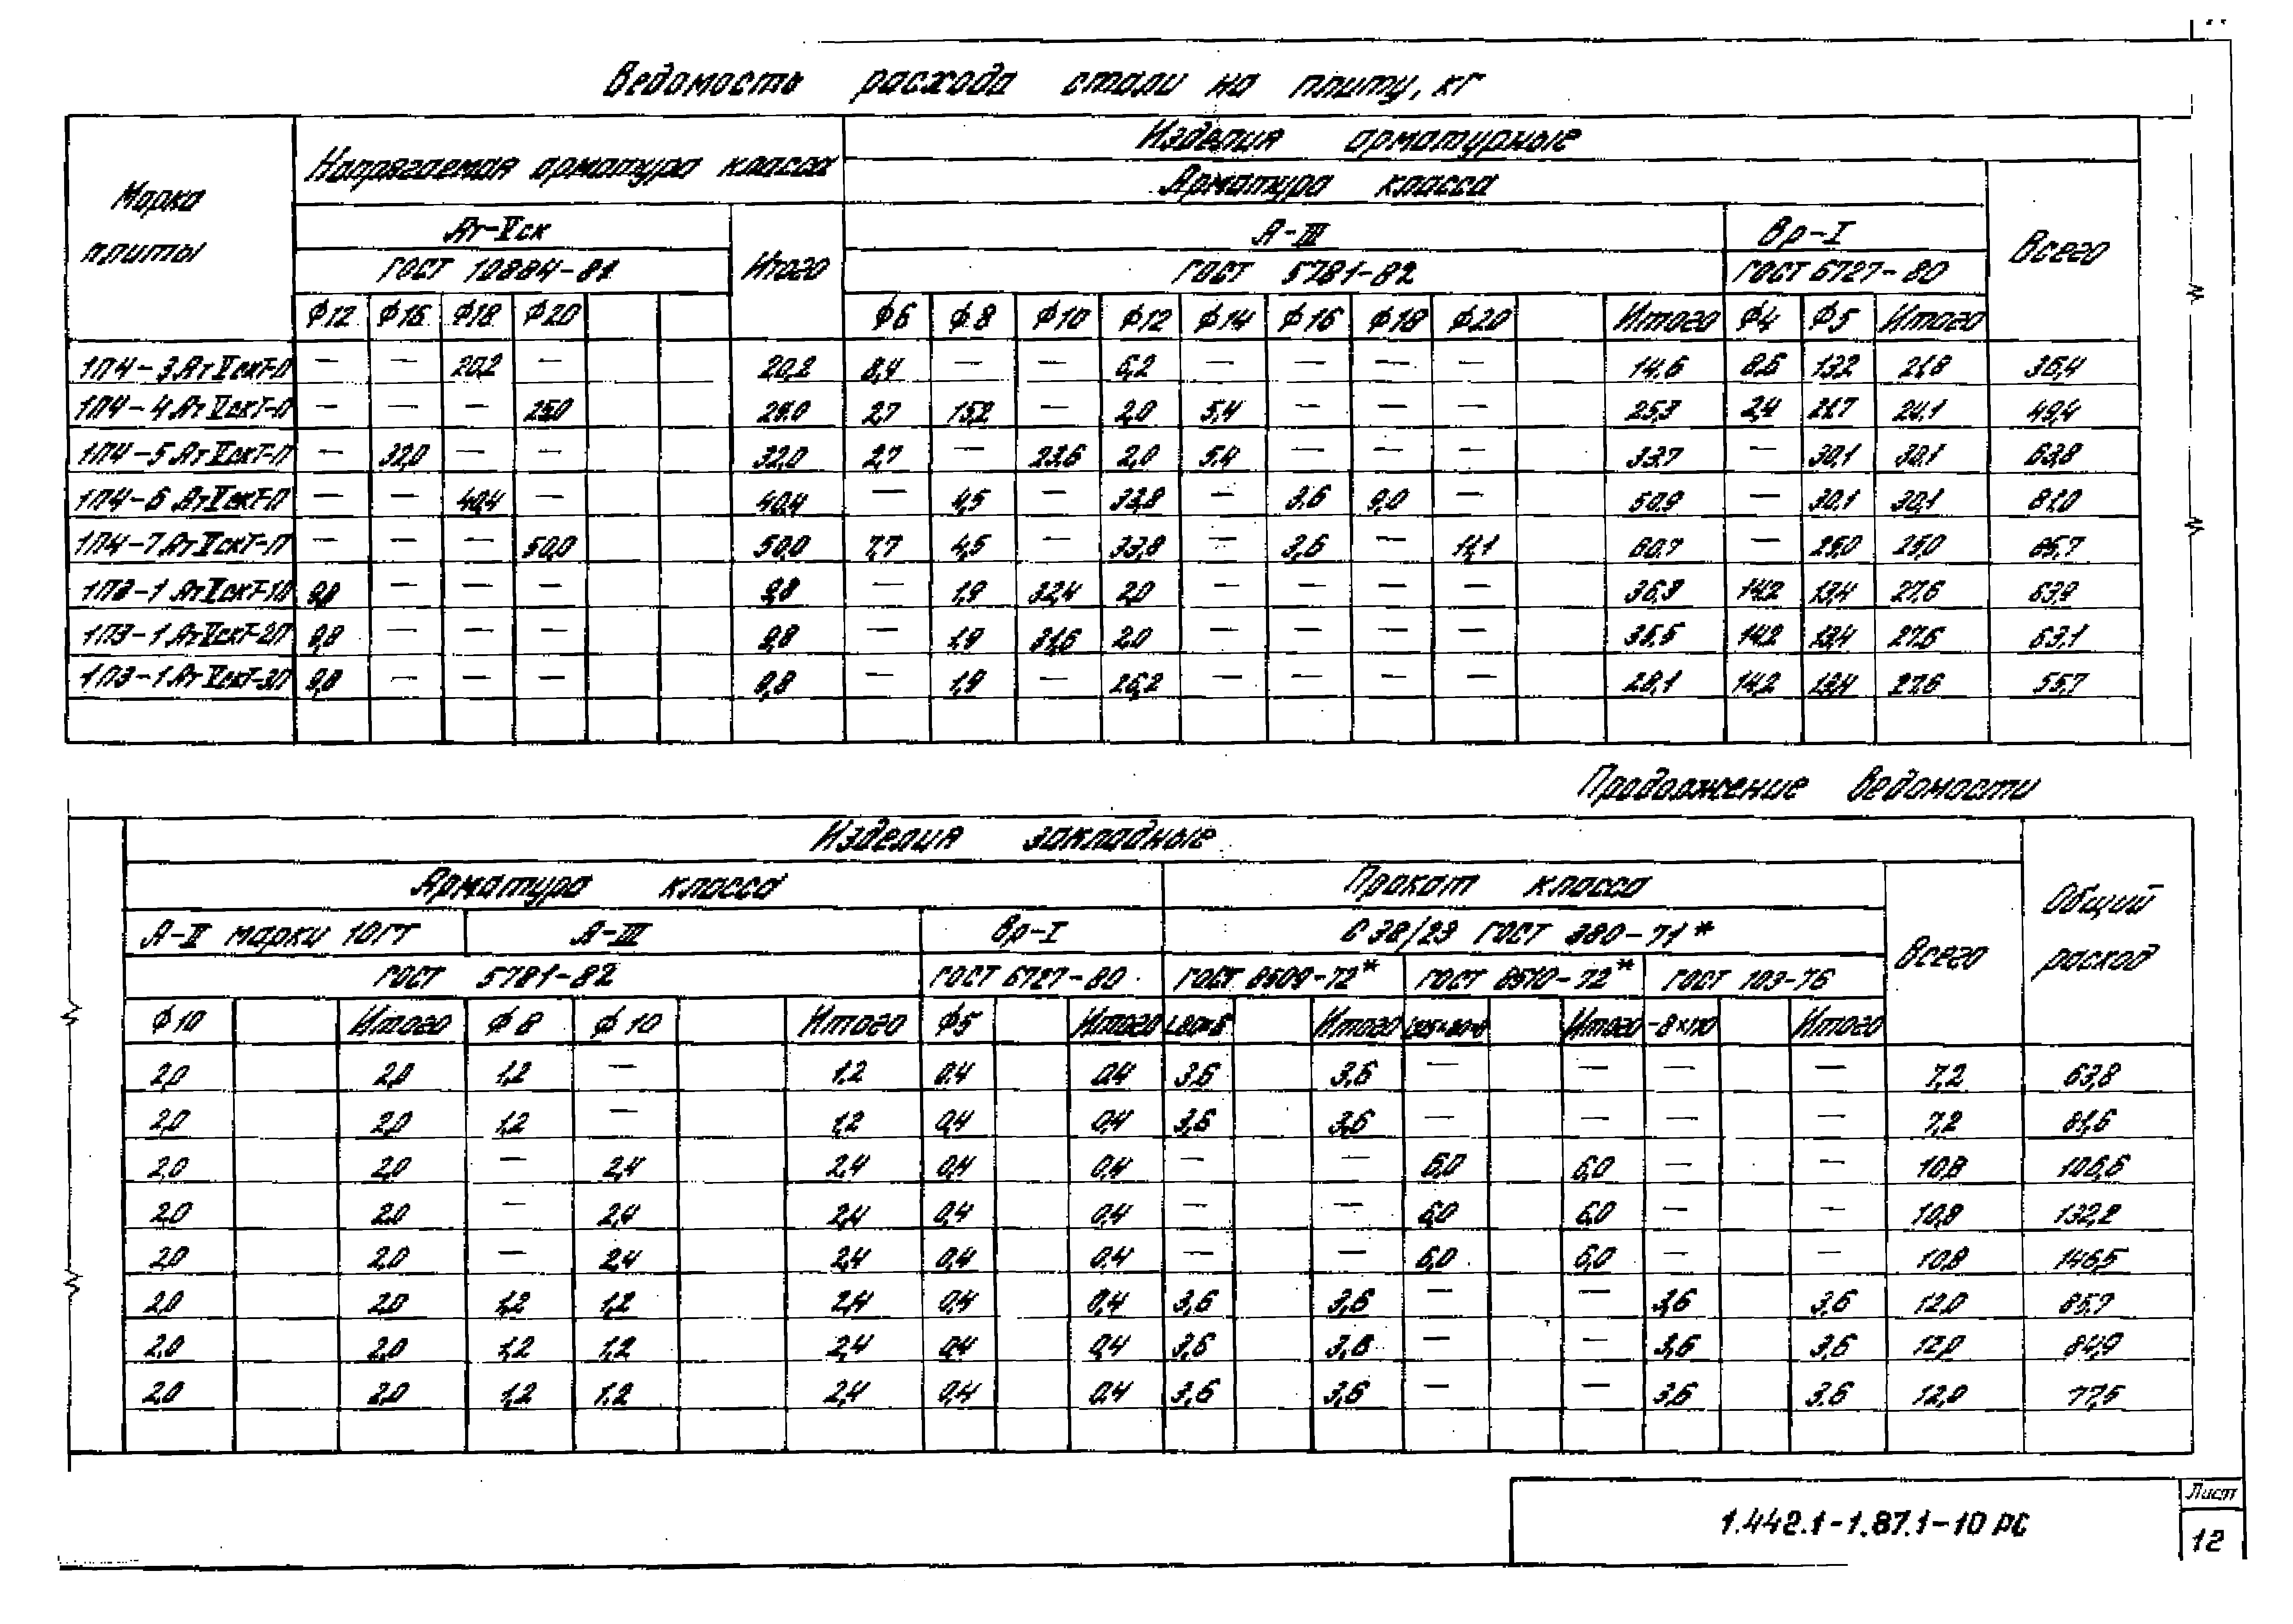 Ведомость расхода стали на плиту, кг
Марка плиты
Напрягаемая арматура класса
Изделия арматурные
Арматура класса
Всего
Ат-Vск
Итого
А-III
Вр-I
ГОСТ 10884-81
ГОСТ 5781-82
ГОСТ 6727-80
φ12 φ16 φ18 φ20 φ6 φ8 φ10 φ12 φ14 φ16 φ18 φ20 Итого φ4 φ5 Итого
1П4-3АтVскТ-П — — 20,2 — 20,2 8,4 — — 6,2 — — — — 14,6 8,6 13,2 21,8 36,4
1П4-4АтVскТ-П — — — 25,0 25,0 2,7 15,2 — 2,0 5,4 — — — 25,3 2,4 21,7 24,1 49,4
1П4-5АтVскТ-П — 32,0 — — 32,0 2,7 — 23,6 2,0 5,4 — — — 33,7 — 30,1 30,1 63,8
1П4-6АтVскТ-П — — 40,4 — 40,4 — 4,5 — 33,8 — 3,6 9,0 — 50,9 — 30,1 30,1 81,0
1П4-7АтVскТ-П — — — 50,0 50,0 7,7 4,5 — 33,8 — 3,6 — 11,1 60,7 — 25,0 25,0 85,7
1П3-1АтVскТ-1П 9,8 — — — 9,8 — 1,9 32,4 2,0 — — — — 36,3 14,2 13,4 27,6 63,9
1П3-1АтVскТ-2П 9,8 — — — 9,8 — 1,9 31,6 2,0 — — — — 35,5 14,2 13,4 27,6 63,1
1П3-1АтVскТ-3П 9,8 — — — 9,8 — 1,9 — 26,2 — — — — 28,1 14,2 13,4 27,6 55,7
Продолжение ведомости
Изделия закладные
Арматура класса
Прокат класса
Всего
Общий расход
А-II марки 10ГТ
А-III
Вр-I
С 38/23 ГОСТ 380-71*
ГОСТ 5781-82
ГОСТ 6727-80
ГОСТ 8509-72*
ГОСТ 8510-72*
ГОСТ 103-76
φ10 Итого φ8 φ10 Итого φ5 Итого L80×8 Итого Итого -8×170 Итого
2,0 2,0 1,2 — 1,2 0,4 0,4 3,6 3,6 — — — — 7,2 63,8
2,0 2,0 1,2 — 1,2 0,4 0,4 3,6 3,6 — — — — 7,2 81,6
2,0 2,0 — 2,4 2,4 0,4 0,4 — — 6,0 6,0 — — 10,8 106,6
2,0 2,0 — 2,4 2,4 0,4 0,4 — — 6,0 6,0 — — 10,8 132,2
2,0 2,0 — 2,4 2,4 0,4 0,4 — — 6,0 6,0 — — 10,8 146,5
2,0 2,0 1,2 1,2 2,4 0,4 0,4 3,6 3,6 — — 3,6 3,6 12,0 85,7
2,0 2,0 1,2 1,2 2,4 0,4 0,4 3,6 3,6 — — 3,6 3,6 12,0 84,9
2,0 2,0 1,2 1,2 2,4 0,4 0,4 3,6 3,6 — — 3,6 3,6 12,0 77,5
1.442.1-1.87.1-10 РС
Лист
12